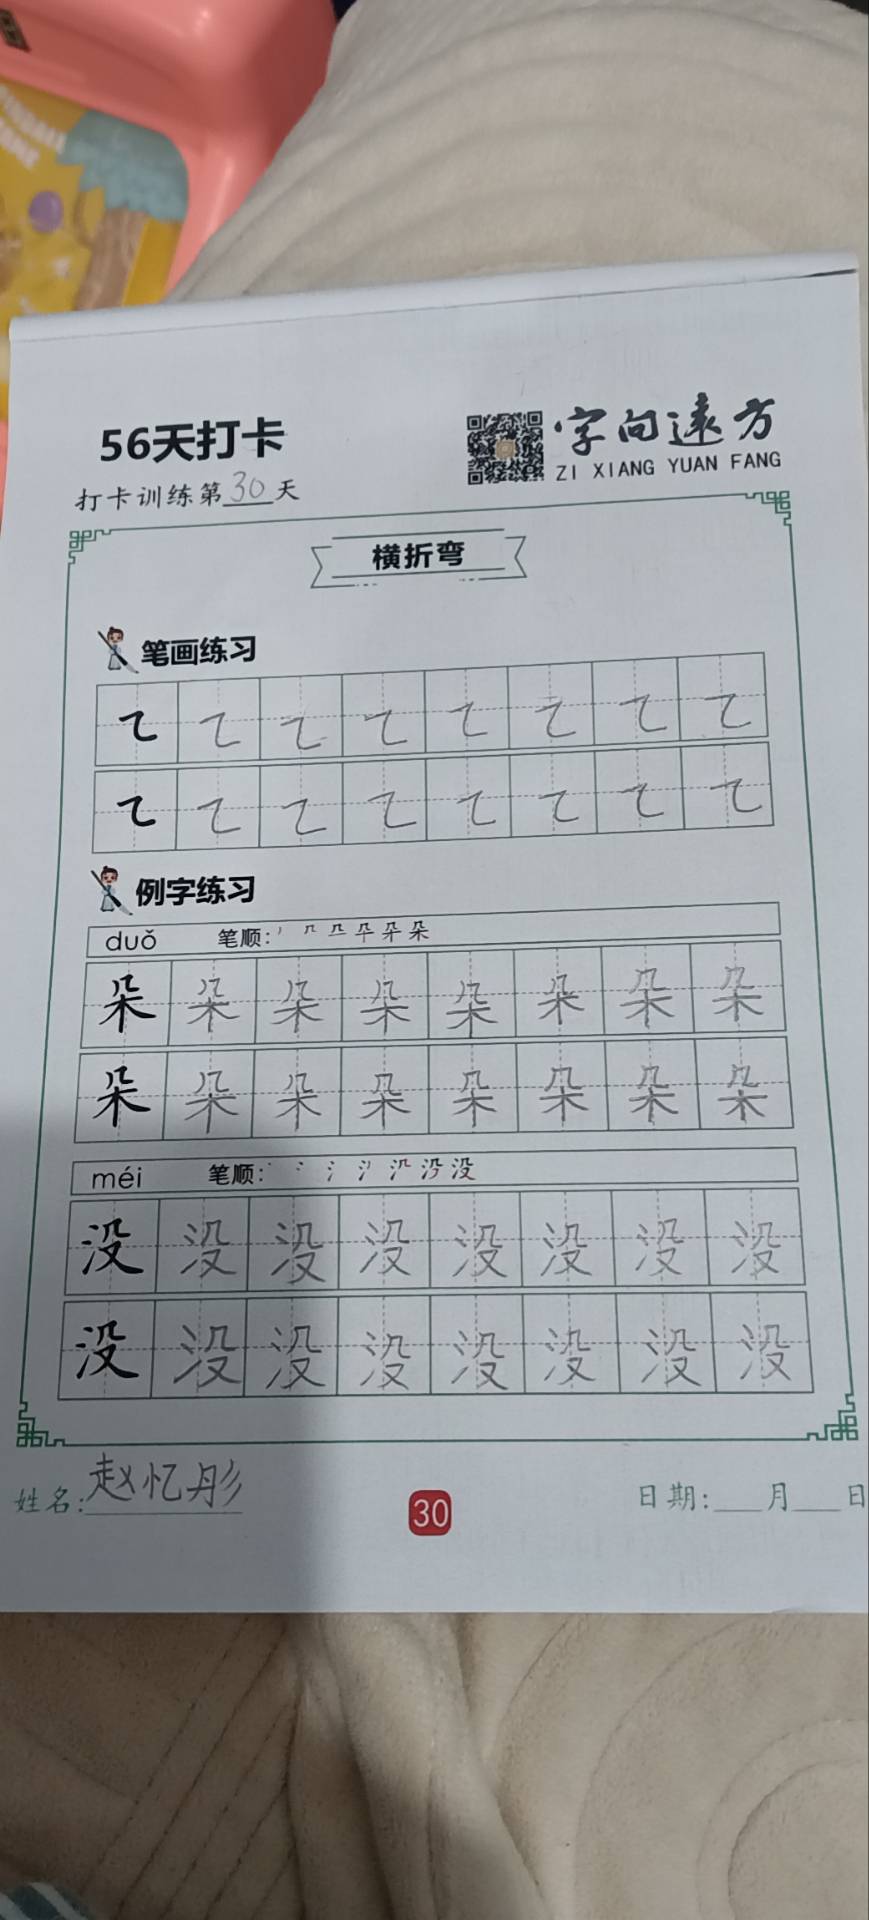 56天打卡
字向远方
ZI XIANG YUAN FANG
打卡训练第30天
横折弯
笔画练习
例字练习
duǒ 笔顺:
朵 朵 朵 朵 朵 朵 朵 朵
朵 朵 朵 朵 朵 朵 朵 朵
méi 笔顺:
没 没 没 没 没 没 没 没
没 没 没 没 没 没 没 没
姓名:赵忆彤
30
日期:___月___日